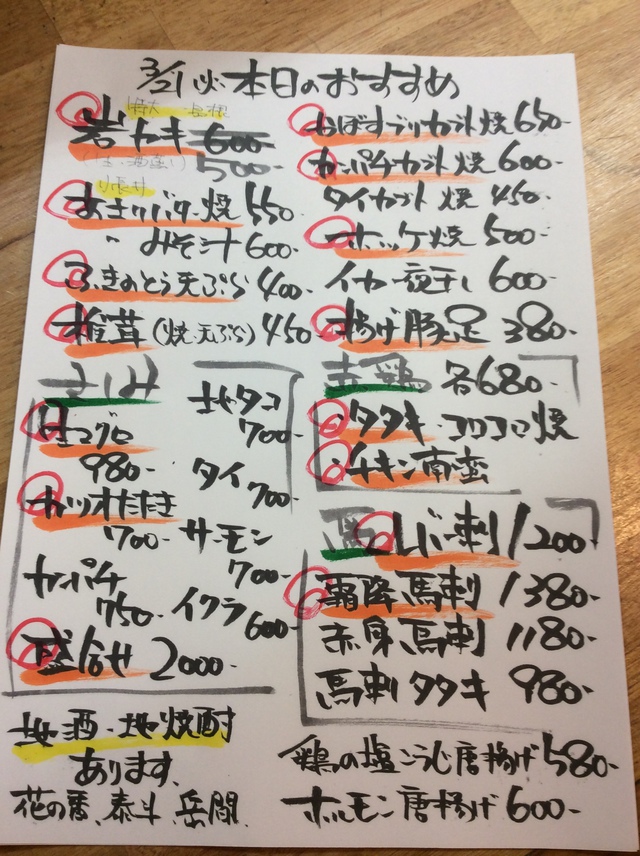 3/21 火 本日のおすすめ
特大
岩ガキ 600-
500-
あさりバター焼 550-
〃 みそ汁 600-
ふきのとう天ぷら 400-
椎茸 (焼・天ぷら) 450-
さしみ
地タコ
700-
生マグロ
980-
タイ
700-
カツオたたき
700-
サーモン
700-
カンパチ
750-
イクラ
600-
盛合せ 2000-
地酒・地焼酎
あります、
花の香、泰斗、岳間
おばすブリカブト焼 650-
カンパチカブト焼 600-
タイカブト焼 450-
ホッケ焼 500-
イカ一夜干し 600-
揚げ豚足 380-
赤鶏 各680-
タタキ・コロコロ焼
チキン南蛮
レバー刺 1200-
霜降馬刺 1380-
赤身馬刺 1180-
馬刺タタキ 980-
鶏の塩こうじ唐揚げ 580-
ホルモン唐揚げ 600-